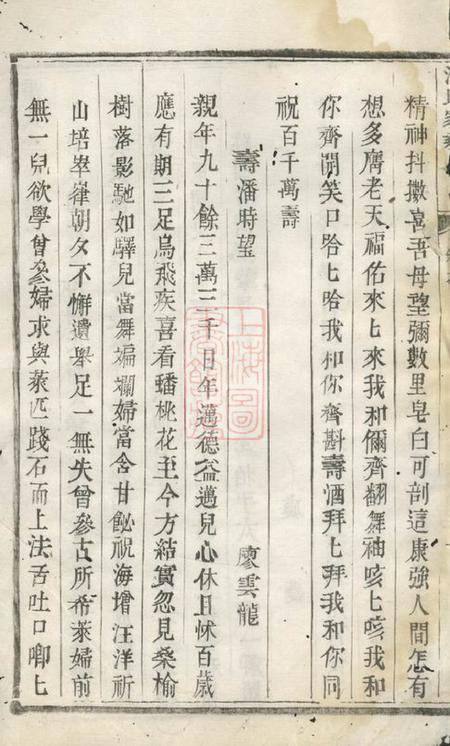 精神抖擻喜吾母望彌數里皂白可剖這康強人間怎有
想多應老天福佑來匕來我和儞齊翻舞袖咳匕咳我和
你齊開笑口哈匕哈我和你齊斟壽酒拜匕拜我和你同
祝百千萬壽
壽潘時望
廖雲龍
親年九十餘三萬三千日年邁德益邁兒心休且怵百歲
應有期三足烏飛疾喜看蟠桃花至今方結實忽見桑榆
樹落影馳如驛兒當舞斒斕婦當含甘飶祝海增汪洋祈
山培崒嵂朝夕不懈遺舉足一無失曾參古所希萊婦前
無一兒欲學曾參婦求與萊匹踐石而上法舌吐口啣匕